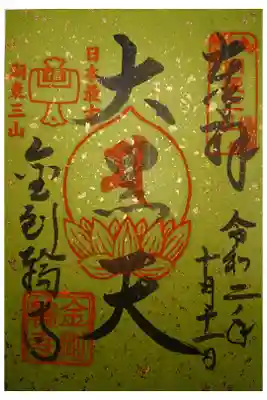 奉拝
令和二年
十月十一日
大黒天
日本最古
湖東三山
金剛輪寺